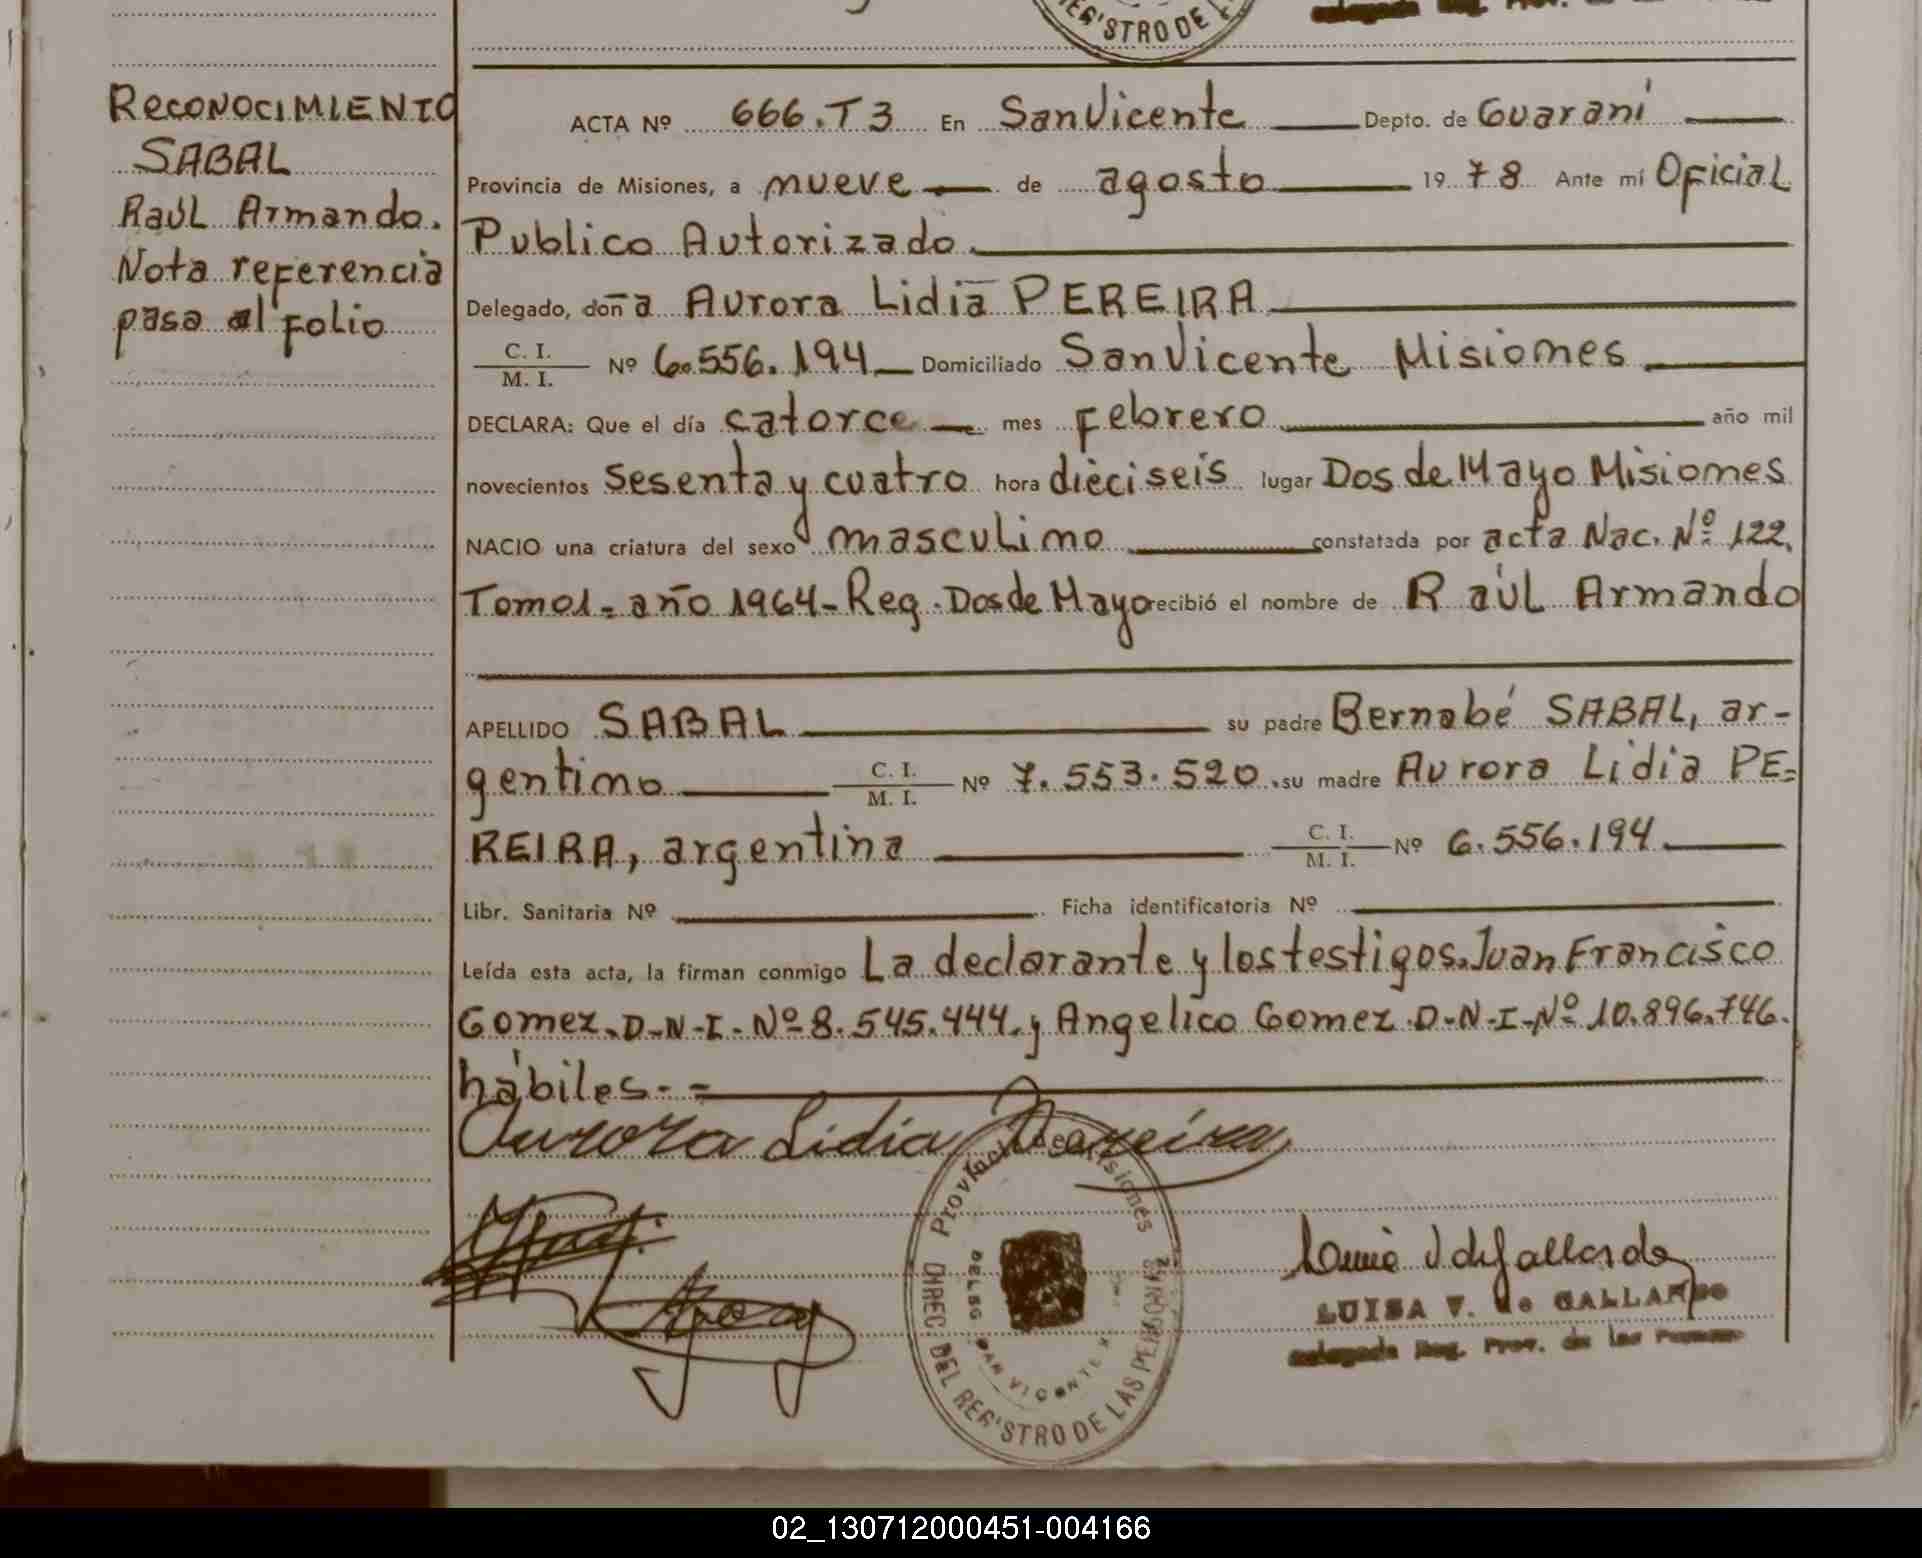 REG'STRO DE
RECONOCIMIENTO
SABAL
Raúl Armando.
Nota referencia
pasa al folio
ACTA Nº 666.T3 En San Vicente Depto. de Guaraní
Provincia de Misiones, a nueve de agosto 19 78 Ante mí Oficial
Publico Autorizado.
Delegado, doña Aurora Lidia PEREIRA
C. I.
M. I. Nº 6.556.194 Domiciliado San Vicente Misiones
DECLARA: Que el día catorce mes febrero año mil
novecientos sesenta y cuatro hora dieciseis lugar Dos de Mayo Misiones
NACIO una criatura del sexo masculino constatada por acta Nac. Nº 122.
Tomo1- año 1964- Reg. Dos de Mayo recibió el nombre de Raúl Armando
APELLIDO SABAL su padre Bernabé SABAL, ar-
gentino C. I. M. I. Nº 7.553.520. su madre Aurora Lidia PE=
REIRA, argentina C. I. M. I. Nº 6.556.194
Libr. Sanitaria Nº Ficha identificatoria Nº
Leída esta acta, la firman conmigo La declarante y los testigos. Juan Francisco
Gomez. D-N-I- Nº 8.545.444. y Angelico Gomez. D-N-I-Nº 10.896.746.
hábiles.- =
Aurora Lidia Pereira
Provincia de Misiones
DIREC. DEL REG'STRO DE LAS PERSONAS
DELEG SAN VICENTE
LUISA V. de GALLARDO
Delegada Reg. Prov. de las Personas
02_130712000451-004166